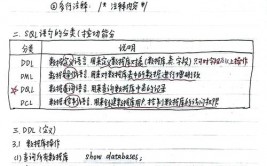 ②多行注释: /* 注释内容 */
二. SQL语句的分类(按功能分
分类 说明
DDL 数据定义语言, 用来定义数据库对象(数据库, 表, 字段)
DML 数据操作语言, 用来对数据库表中的数据进行增删改
DQL 数据查询语言, 用来查询数据库中表的记录
DCL 数据控制语言, 用来创建数据库用户, 控制数据库的访问权限
三. DDL (定义)
3.1 数据库操作
(1) 查询所有数据库 show databases;